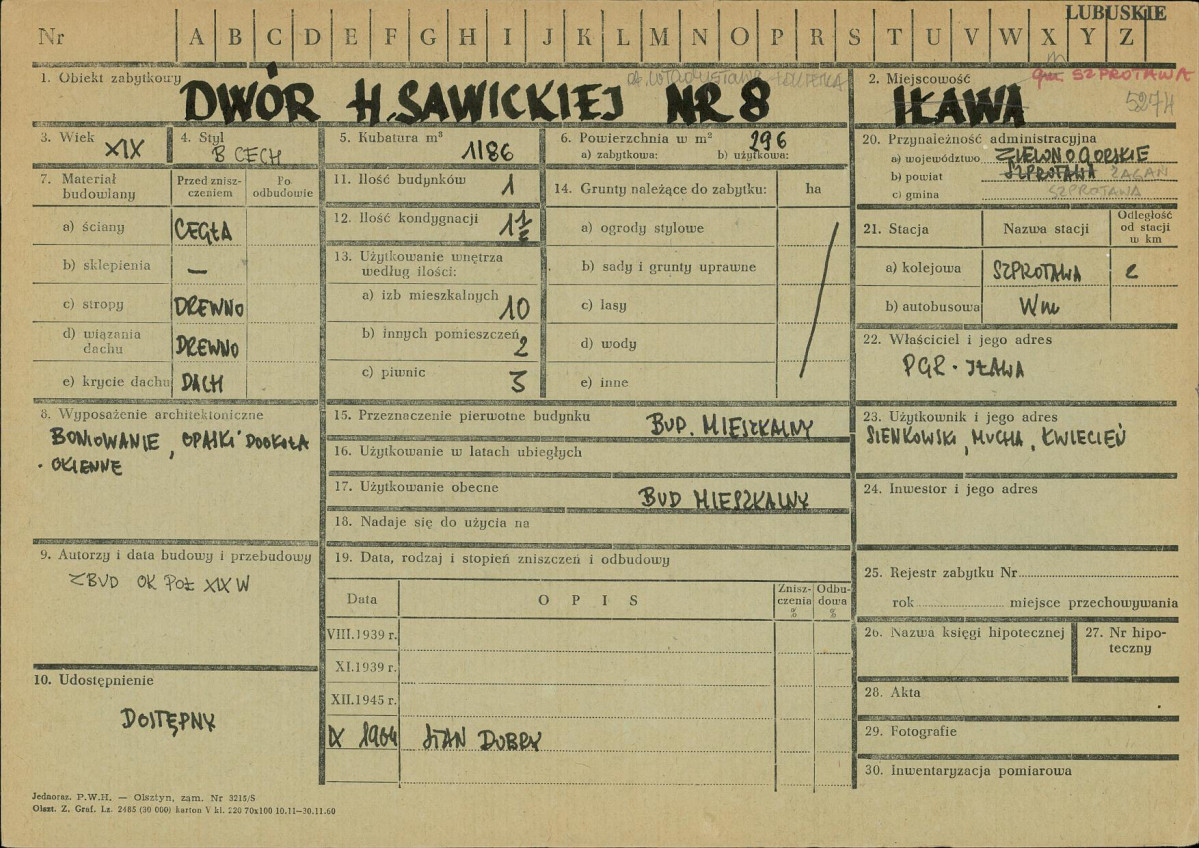 LUBUSKIE
Nr A B C D E F G H I J K L M N O P R S T U V W X Y Z
1. Obiekt zabytkowy
DWÓR H. SAWICKIEJ NR 8
2. Miejscowość
gm. SZPROTAWA
IŁAWA
5274
3. Wiek
XIX
4. Styl
B CECH
5. Kubatura m³
1186
6. Powierzchnia w m²
296
a) zabytkowa: b) użytkowa:
7. Materiał budowlany
Przed zniszczeniem
Po odbudowie
a) ściany CEGŁA
b) sklepienia —
c) stropy DREWNO
d) wiązania dachu DREWNO
e) krycie dachu DACH
8. Wyposażenie architektoniczne
BONIOWANIE, OPASKI DOOKOŁA
OKIENNE
9. Autorzy i data budowy i przebudowy
ZBUD OK POŁ XIX W
10. Udostępnienie
DOSTĘPNY
11. Ilość budynków 1
12. Ilość kondygnacji 1 1/2
13. Użytkowanie wnętrza
według ilości:
a) izb mieszkalnych 10
b) innych pomieszczeń 2
c) piwnic 3
14. Grunty należące do zabytku: ha
a) ogrody stylowe
b) sady i grunty uprawne
c) lasy
d) wody
e) inne
15. Przeznaczenie pierwotne budynku BUD. MIESZKALNY
16. Użytkowanie w latach ubiegłych
17. Użytkowanie obecne BUD MIESZKALNY
18. Nadaje się do użycia na
19. Data, rodzaj i stopień zniszczeń i odbudowy
Data OPIS Zniszczenia % Odbudowa %
VIII.1939 r.
XI.1939 r.
XII.1945 r.
IX 1964 STAN DOBRY
20. Przynależność administracyjna
a) województwo ZIELONOGÓRSKIE
b) powiat SZPROTAWA ŻAGAŃ
c) gmina SZPROTAWA
21. Stacja Nazwa stacji Odległość od stacji w km
a) kolejowa SZPROTAWA 2
b) autobusowa Wm
22. Właściciel i jego adres
PGR - IŁAWA
23. Użytkownik i jego adres
SIENKOWSKI, MUCHA, KWIECIEŃ
24. Inwestor i jego adres
25. Rejestr zabytku Nr
rok miejsce przechowywania
26. Nazwa księgi hipotecznej
27. Nr hipoteczny
28. Akta
29. Fotografie
30. Inwentaryzacja pomiarowa
Jednoraz. P.W.H. — Olsztyn, zam. Nr 3215/S
Olszt. Z. Graf. Lz. 2485 (30 000) karton V kl. 220 70x100 10.11—30.11.60